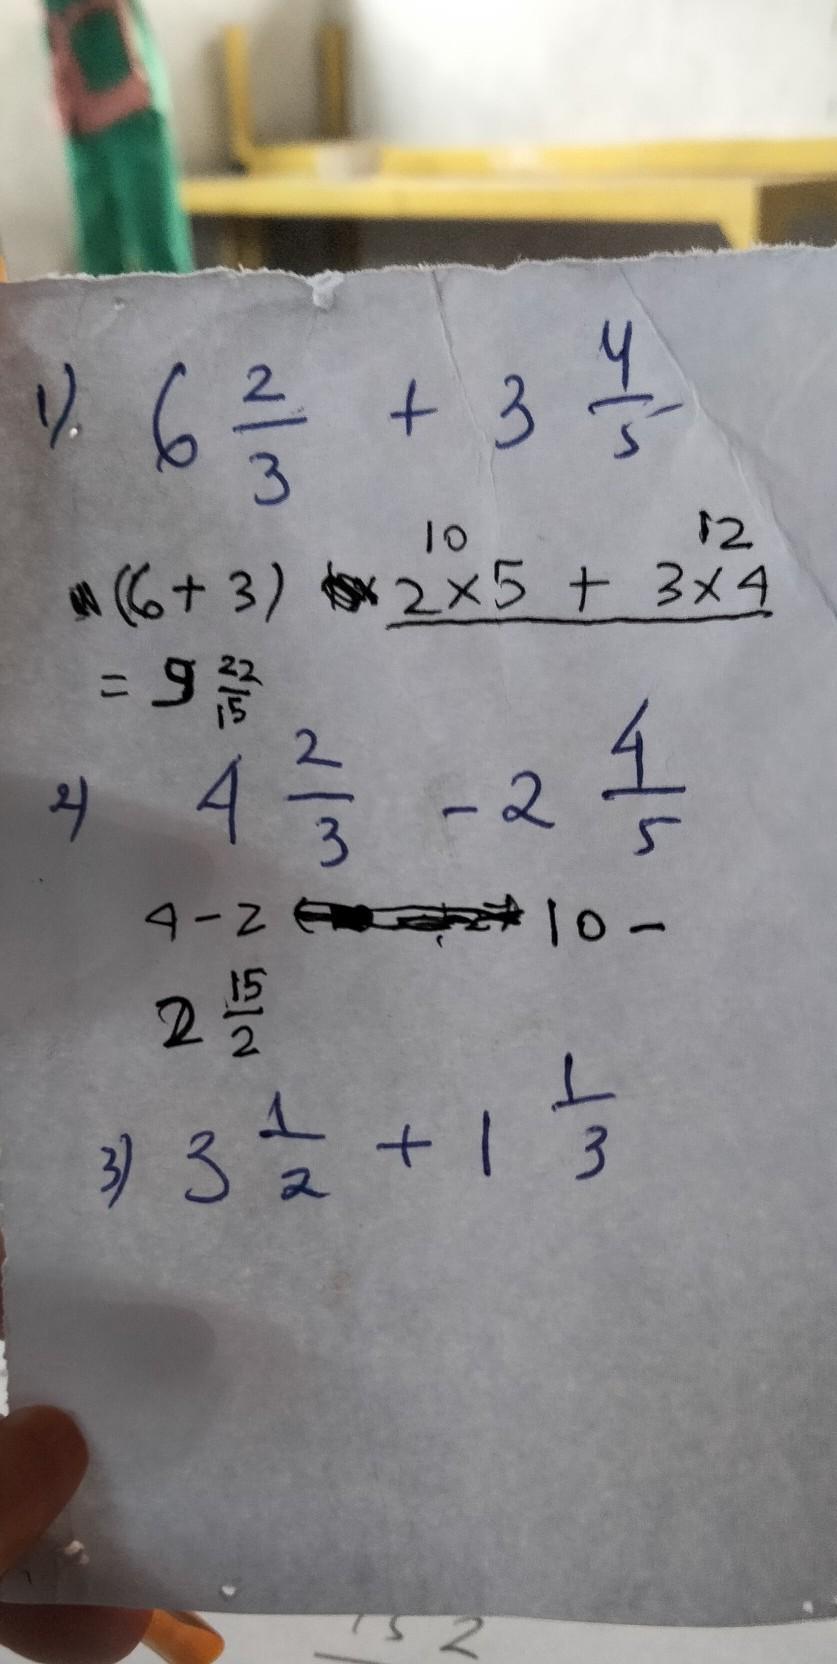 1). 6 2/3 + 3 4/5
10 12
(6+3) 2×5 + 3×4
= 9 22/15
2) 4 2/3 - 2 4/5
4-2 10 -
2 15/2
3) 3 1/2 + 1 1/3